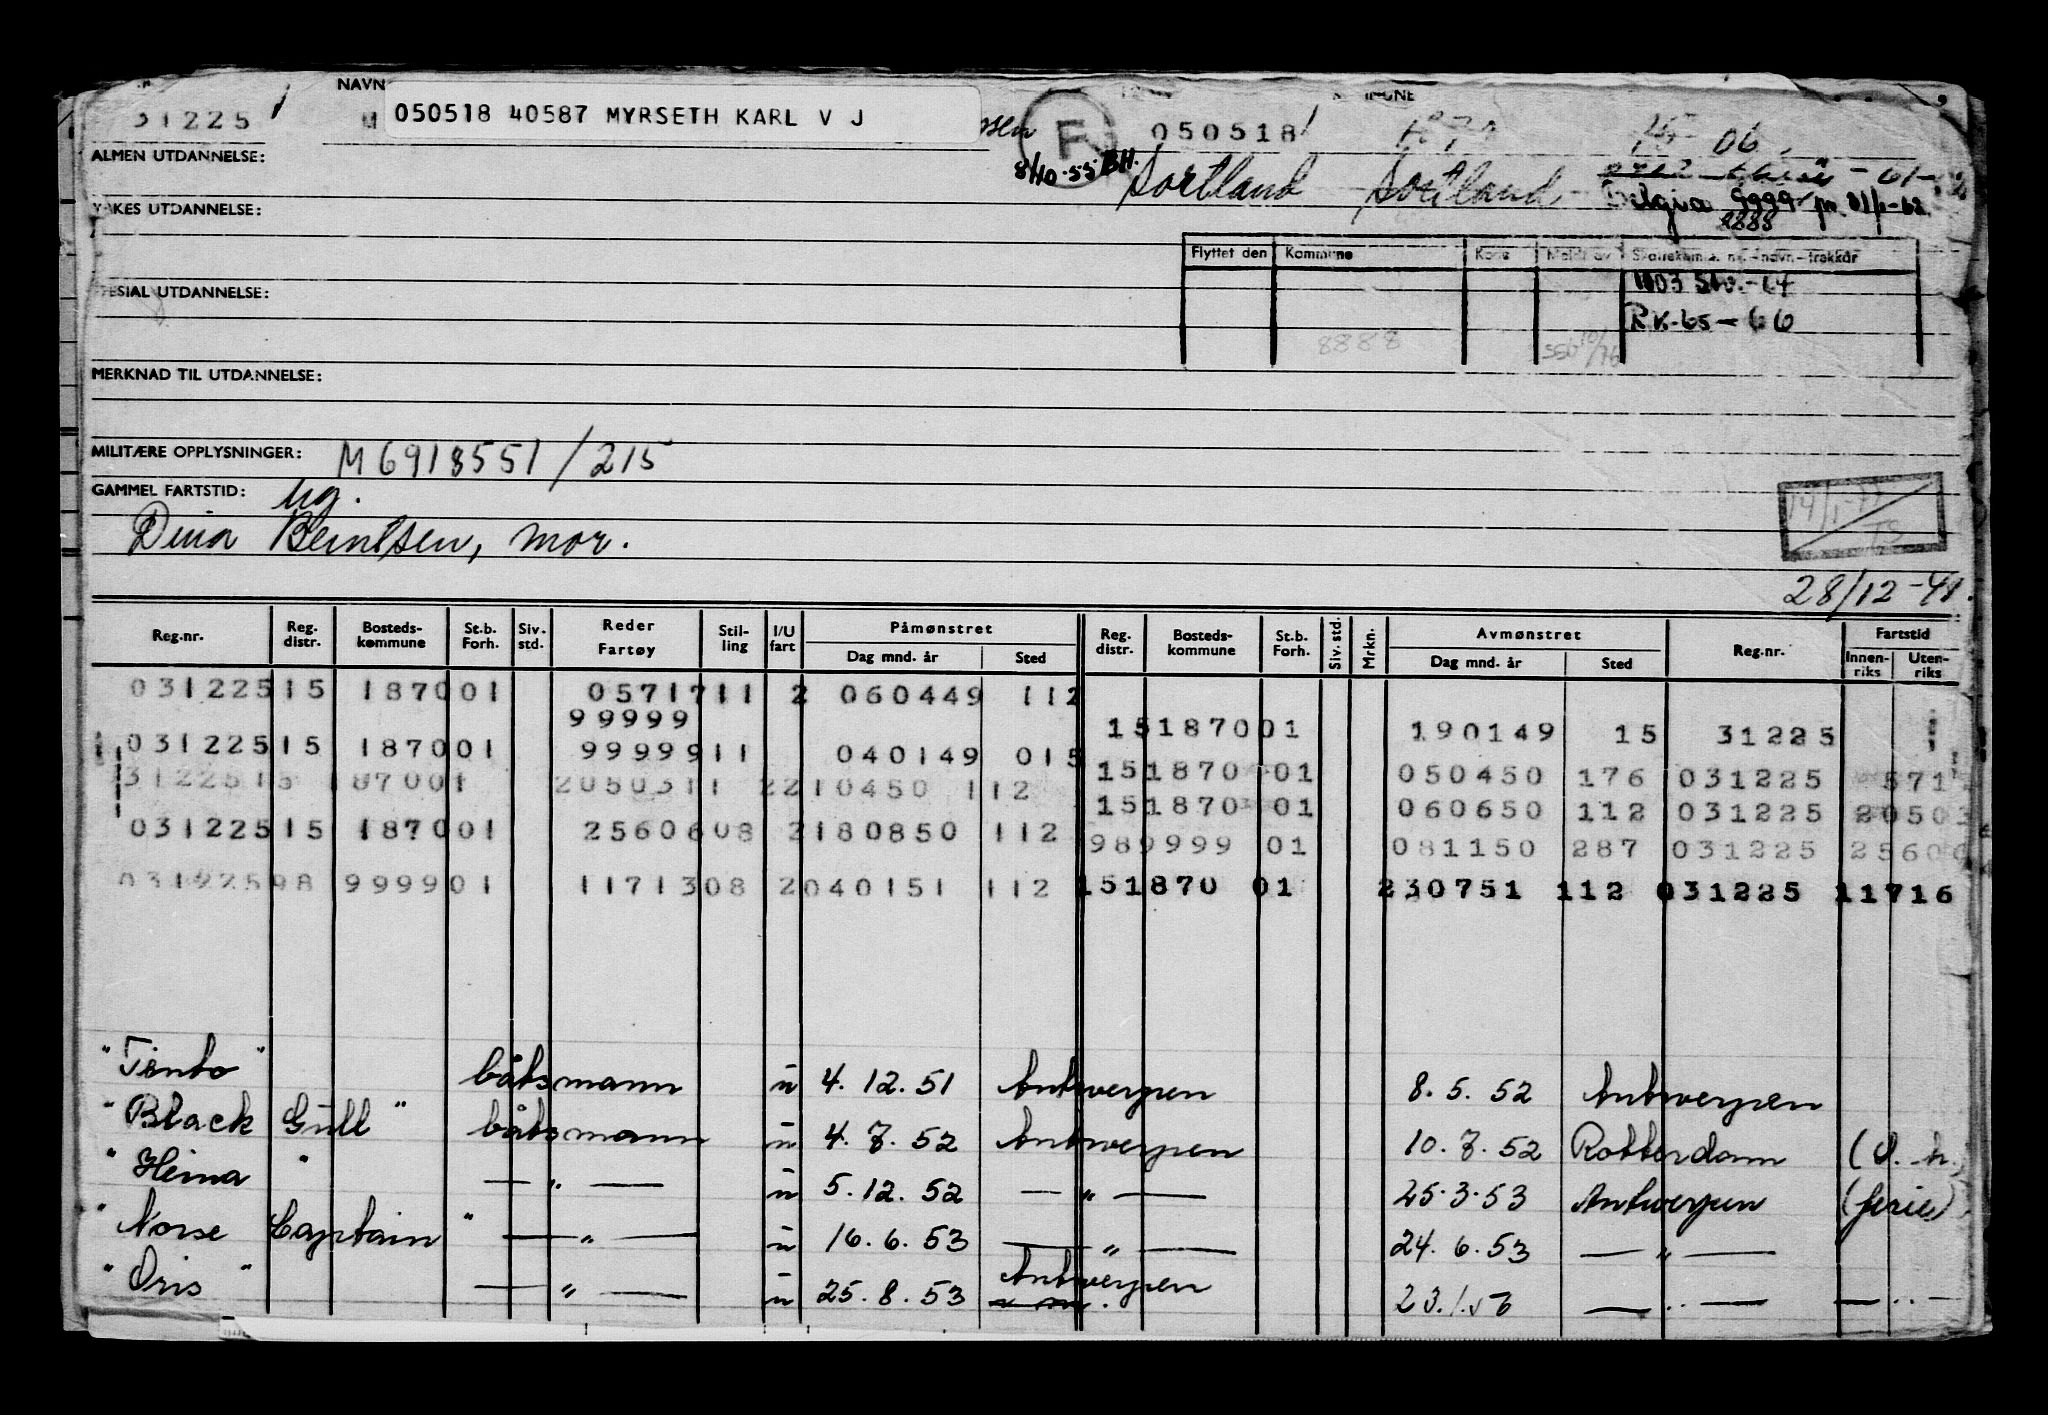 NAVN
31225
050518 40587 MYRSETH KARL V J
F
050518
06
ALMEN UTDANNELSE:
8/10-55 BH.
Sortland Sortland
Belgia 9999
8888
UTDANNELSE:
Flyttet den Kommune
1103 Stv.-64
UTDANNELSE:
RK-65-66
8888
MERKNAD TIL UTDANNELSE:
MILITÆRE OPPLYSNINGER: M6918551/215
GAMMEL FARTSTID: ug.
Dina Berntsen, mor.
28/12-41.
Reg.nr. Reg. distr. Bosteds-kommune St.b. Forh. Siv. std. Reder Fartøy Stil-ling I/U fart Påmønstret Dag mnd. år Sted Reg. distr. Bosteds-kommune St.b. Forh. Siv. std. Mrkn. Avmønstret Dag mnd. år Sted Reg.nr. Fartstid Innen-riks Uten-riks
031225 15 1870 01 05717 11 2 060449 112
99999 15 1870 01 190149 15 31225
031225 15 1870 01 99999 11 040149 015 15 1870 01 050450 176 031225 571
31225 15 1870 01 20503 11 2 210450 112 15 1870 01 060650 112 031225 20503
031225 15 1870 01 25606 08 2 180850 112 98 9999 01 081150 287 031225 2560
031225 98 9999 01 11713 08 2 040151 112 15 1870 01 230751 112 031225 11716
" " båtsmann u 4. 12. 51 Antwerpen 8. 5. 52 Antwerpen
"Black Gull" båtsmann u 4. 7. 52 Antwerpen 10. 7. 52 Rotterdam
"Heina" — " — u 5. 12. 52 — " — 25. 3. 53 Antwerpen (ferie)
"Norse Captain" — " — u 16. 6. 53 — " — 24. 6. 53 — " —
"Oris" — " — u 25. 8. 53 Antwerpen — " — — " —